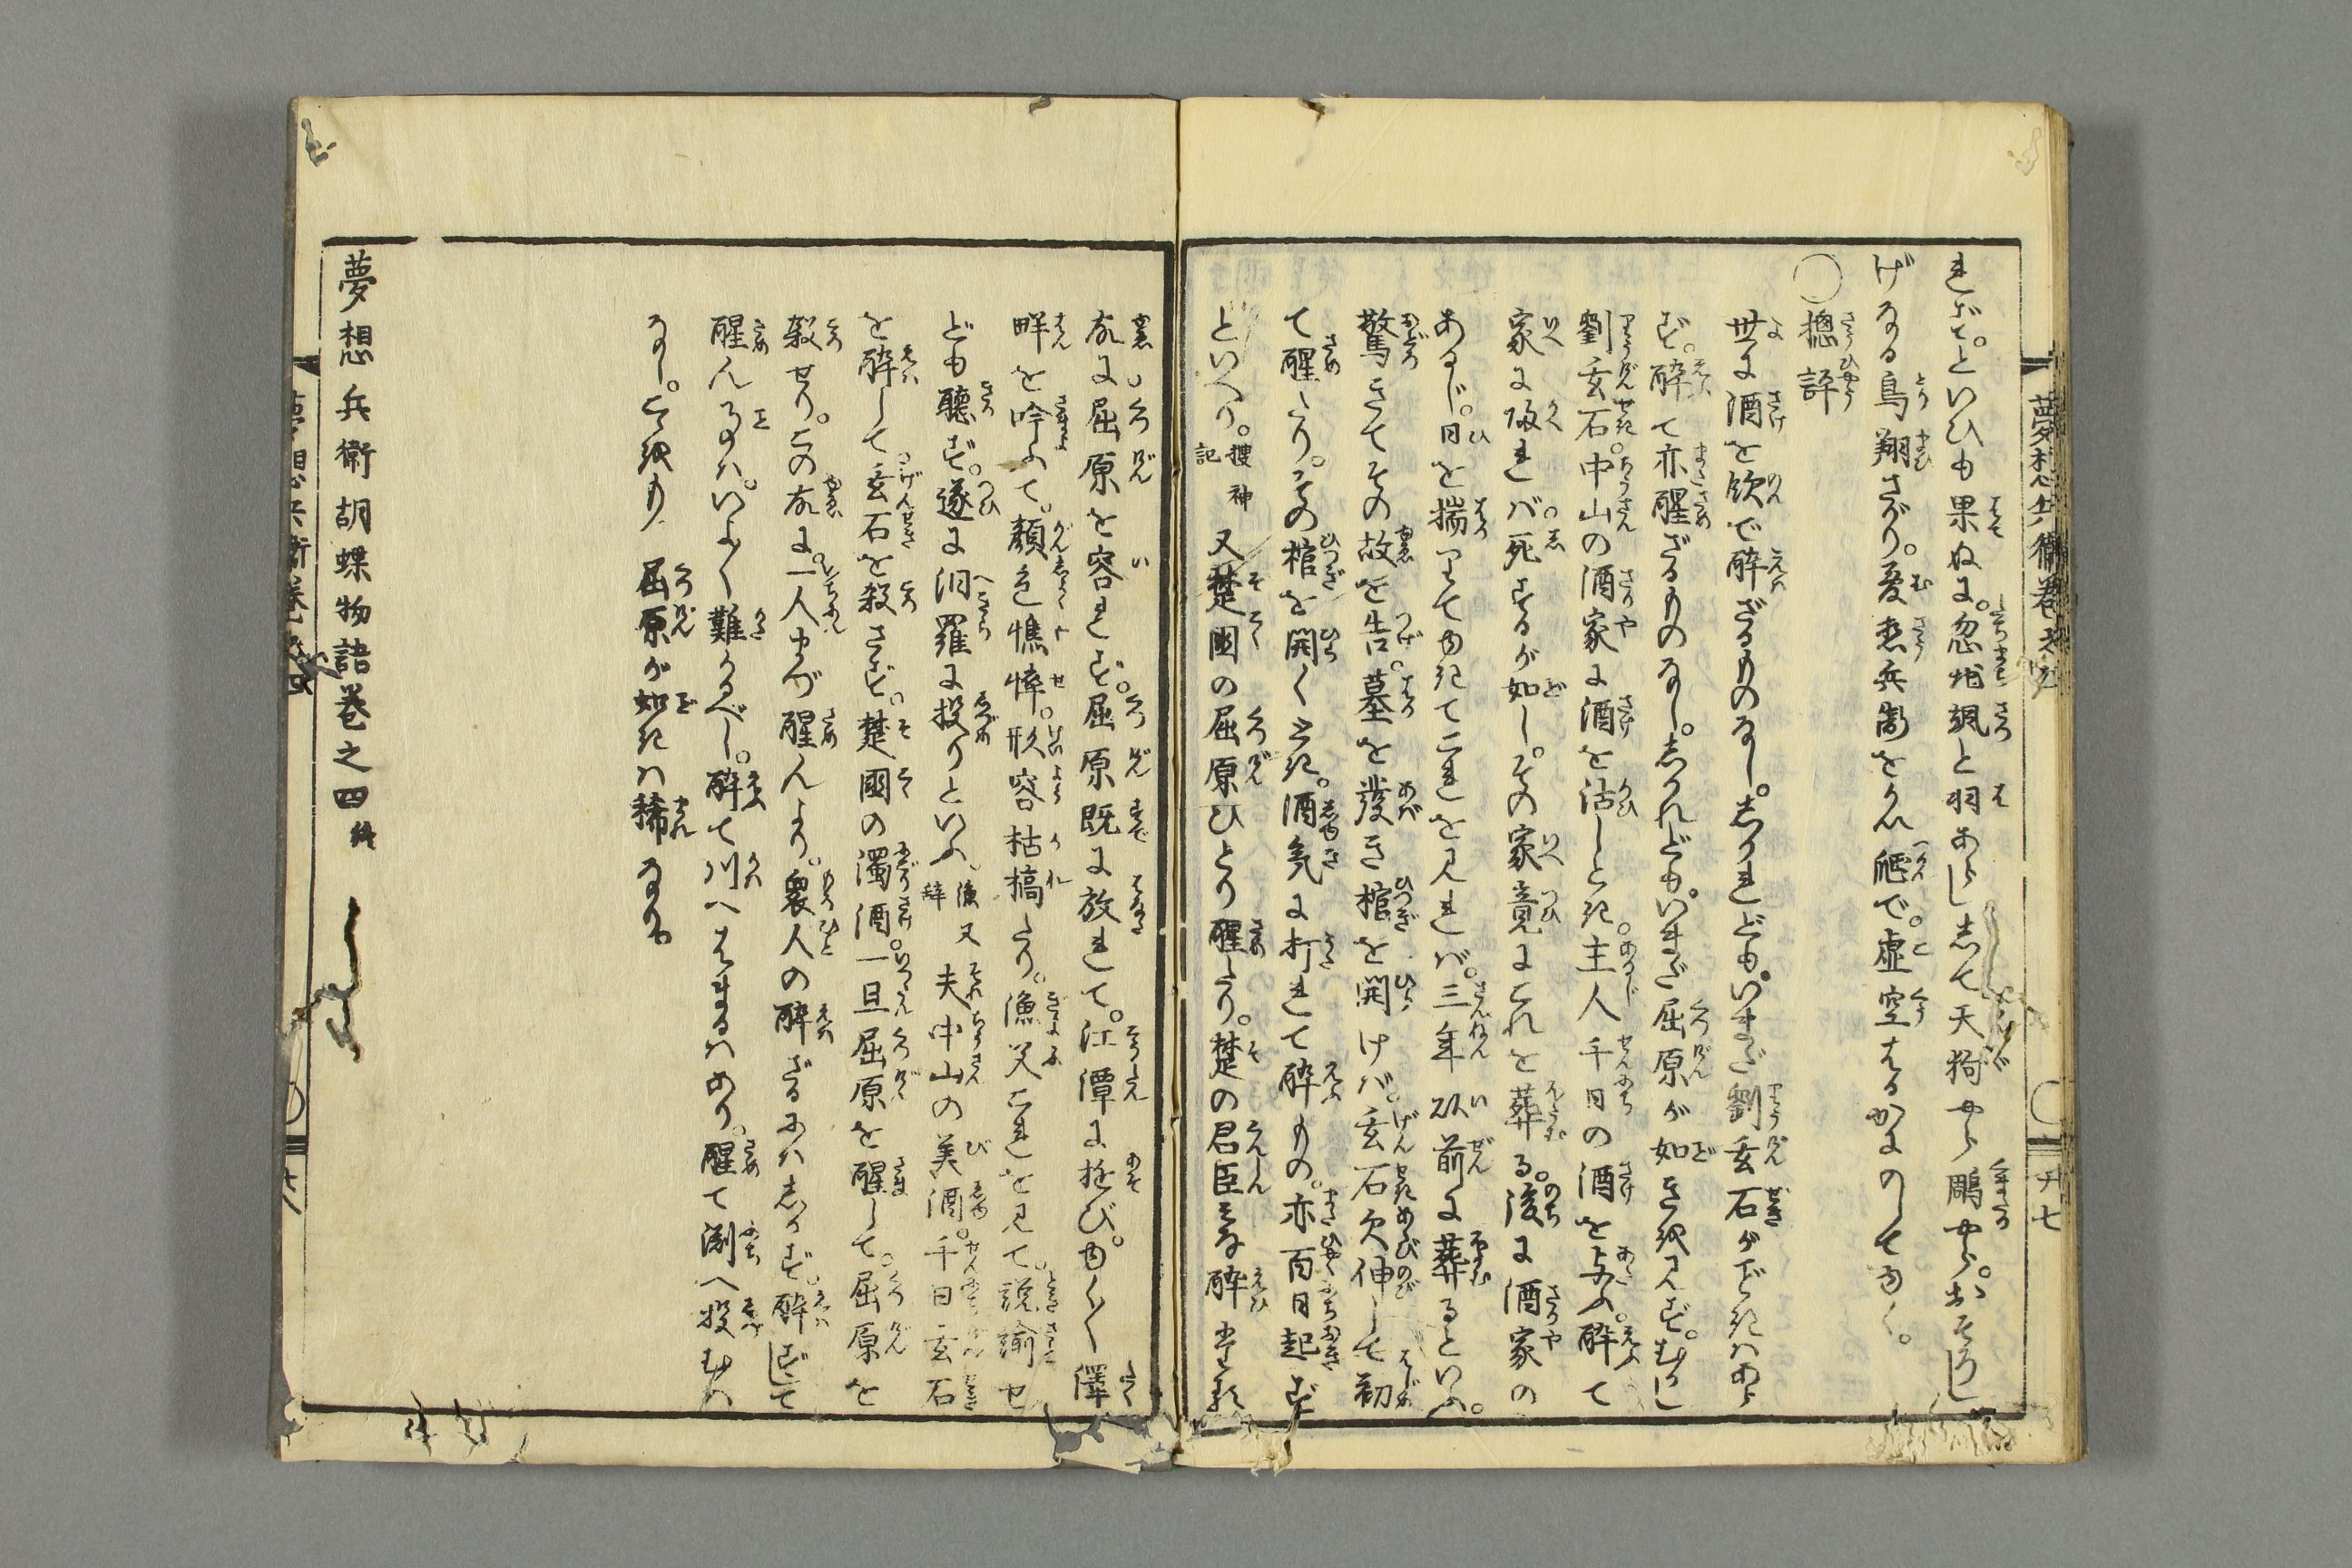 夢想兵衛巻之四
廿七
れど。といひも果ぬに。忽地颯と羽おとして天狗やら鵰やら。おそろし
げなる鳥翔さがり。夢想兵衛をかい爬で。虚空はるかにのして ゆく。
○ 摠評
世に酒を飲で酔ざるものなし。しかれども。いまだ劉玄石がごときはあら
ず。酔て亦醒ざるものなし。しかれども。いまだ屈原が如きを見ず。むかし
劉玄石。中山の酒家に酒を沽しとき。主人千日の酒を与ふ。酔て
家に帰れば。死するが如し。その家竟にこれを葬る。後に酒家の
あるじ。日を揣りてゆきてこれを見れば。三年以前に葬るといふ。
驚きてその故を告。墓を発き棺を開けば。玄石欠伸して初
て醒たり。その棺を開くとき。酒気に打れて酔もの。亦百日起ず
といへり。捜神記 又楚国の屈原ひとり醒たり。楚の君臣みな酔
故に屈原を容れず。屈原既に放れて。江潭に遊び。ゆく〳〵澤
畔を吟ふて。顔色憔悴。形容枯槁たり。漁父これを見て。説諭せ
ども聴ず。遂に汨羅に投りといふ。漁父辞 夫中山の美酒。千日玄石
を酔して玄石を殺さず。楚国の濁酒。一旦屈原を醒して。屈原を
殺せり。この故に。一人まづ醒んより。衆人の酔ざるにはしかず。酔ずして
醒んものは。いよ〳〵難かるべし。酔て川へはまるはあり。醒て淵へ投むは
なし。 屈原が如きは稀なり。
夢想兵衛胡蝶物語巻之四 終
夢想兵衛巻之四
廿八